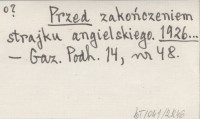 o?
Przed zakończeniem
strajku angielskiego. 1926...
— Gaz. Podh. 14, nr 48.